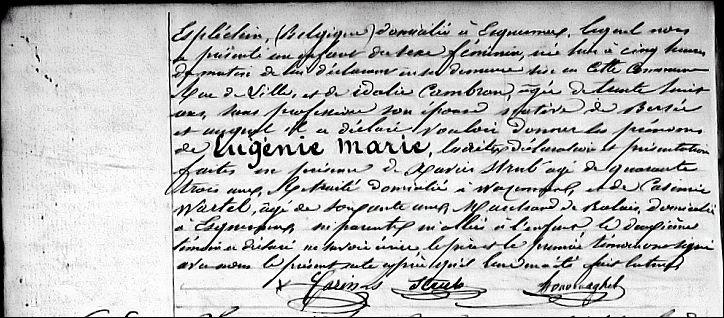 Esplechin, (Belgique) domicilié à Esquermes, lequel nous
a présenté un enfant du sexe féminin, née hier à cinq heures
du matin de lui déclarant en sa demeure sise en cette Commune
Rue de Ville, et de Idalie Cambron, âgée de trente huit
ans, sans profession son épouse native de Bersée
et auquel il a déclaré vouloir donner les prénoms
de Eugénie Marie, lesdites déclaration et présentation
faites en présence de Xavier Strub âgé de quarante
trois ans, Retraité domicilié à Wazemmes, et de Casimir
Wartel, âgé de soixante ans, Marchand de Balais, domicilié
à Esquermes, ni parents ni alliés à l'enfant, le deuxième
témoin a déclaré ne savoir écrire le père et le premier témoin ont signé
avec nous le présent acte après qu'il leur en a été fait lecture
Strub